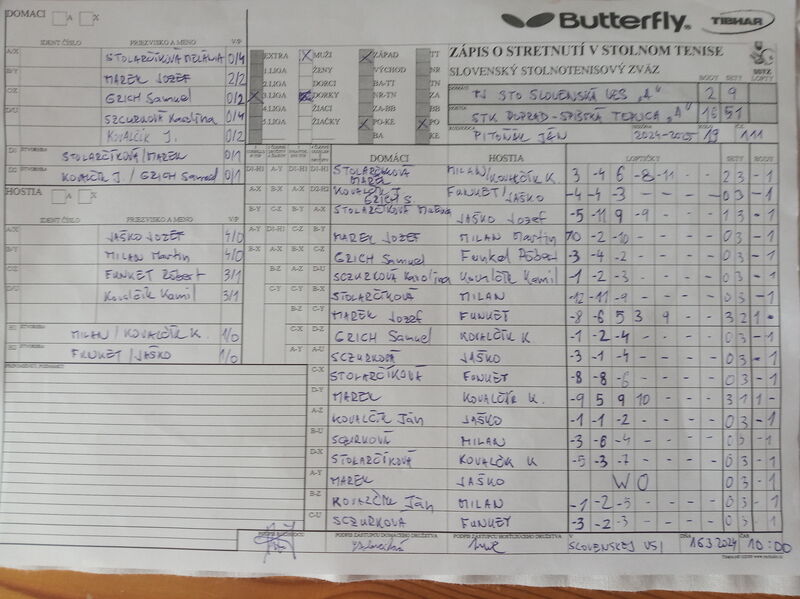 DOMACI A X
Butterfly TIBHAR
IDENT ČÍSLO PRIEZVISKO A MENO V/P
ZÁPIS O STRETNUTÍ V STOLNOM TENISE
SLOVENSKÝ STOLNOTENISOVÝ ZVÄZ
BODY SETY LOPTY
A/X STOLARČÍKOVÁ MELÁNIA 0/4
B/Y MAREK JOZEF 2/2
C/Z GRICH Samuel 0/2
D/U SZCURKOVÁ Karolína 0/4
KOVALČÍK J. 0/2
D1 ŠTVORHRA STOLARČÍKOVÁ/MAREK 0/1
D2 KOVALČÍK J / GRICH Samuel 0/1
EXTRA MUŽI ZÁPAD TT
1.LIGA ŽENY VÝCHOD BA
2.LIGA DORCI BA-TT TN
3.LIGA DORKY NR-TN NR
4.LIGA ŽIACI ZA-BB ZA
5.LIGA ŽIAČKY PO-KE PO
BA KE
DOMÁCI TJ STO SLOVENSKÁ VES "A" 2 9
HOSTIA STK POPRAD-SPIŠSKÁ TEPLICA "A" 16 51
ROZHODCA PITOŇÁK JÁN 2024-2025 19 111
HOSTIA
IDENT ČÍSLO PRIEZVISKO A MENO V/P
A/X JAŠKO JOZEF 4/0
B/Y MILAN Martin 4/0
C/Z FUNKET Róbert 3/1
D/U Kovalčík Kamil 3/1
H1 ŠTVORHRA MILAN / KOVALČÍK K. 1/0
H2 ŠTVORHRA FUNKET / JAŠKO 1/0
PRIPOMIENKY, POZNÁMKY
DOMÁCI HOSTIA LOPTIČKY SETY BODY
STOLARČÍKOVÁ MAREK MILAN/KOVALČÍK K. 3 -4 6 -8 -11 - - 2 3 - 1
KOVALČÍK J GRICH S. FUNKET/JAŠKO -4 -4 -3 - - - - 0 3 - 1
STOLARČÍKOVÁ JAŠKO Jozef -5 -11 9 -9 - - - 1 3 - 1
MAREK JOZEF MILAN Martin -2 -10 - - - - 0 3 - 1
GRICH Samuel Funket Róbert -3 -4 -2 - - - - 0 3 - 1
SCZURKOVÁ Karolína Kovalčík Kamil -1 -2 -3 - - - - 0 3 - 1
STOLARČÍKOVÁ MILAN -12 -11 -9 - - - - 0 3 - 1
MAREK Jozef FUNKET -8 -6 5 3 9 - - 3 2 1 -
GRICH Samuel KOVALČÍK K. -1 -2 -4 - - - - 0 3 - 1
SCZURKOVÁ JAŠKO -3 -1 -4 - - - - 0 3 - 1
C-X STOLARČÍKOVÁ FUNKET -8 -8 -6 - - - - 0 3 - 1
D-Y MAREK KOVALČÍK K. -9 5 9 10 - - - 3 1 1 -
A-Z KOVALČÍK Ján JAŠKO -1 -1 -2 - - - - 0 3 - 1
B-U SCZURKOVÁ MILAN -3 -6 -4 - - - - 0 3 - 1
D-X STOLARČÍKOVÁ KOVALČÍK K -5 -3 -7 - - - - 0 3 - 1
A-Y MAREK JAŠKO W O 0 3 - 1
B-Z KOVALČÍK Ján MILAN -1 -2 -5 - - - - 0 3 - 1
C-U SCZURKOVA FUNKET -3 -2 -3 - - - - 0 3 - 1
PODPIS ROZHODCU PODPIS ZÁSTUPCU DOMÁCEHO DRUŽSTVA PODPIS ZÁSTUPCU HOSŤUJÚCEHO DRUŽSTVA V SLOVENSKEJ VSI DŇA 16.3.2024 ČAS 10:00